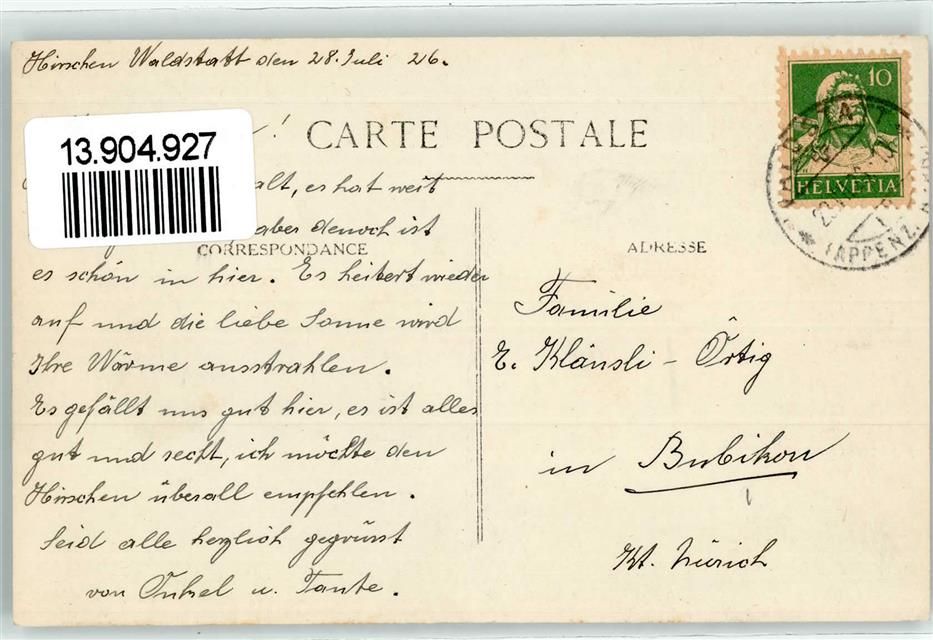 Hirschen Waldstatt den 28. Juli 26.
!
CARTE POSTALE
13.904.927
alt, es hat weit
aber dennoch ist
CORRESPONDANCE
es schön in hier. Es heitert wieder
auf und die liebe Sonne wird
Ihre Wärme ausstrahlen.
Es gefällt uns gut hier, es ist alles
gut und recht, ich möchte den
Hirschen überall empfehlen.
Seid alle herzlich gegrüsst
von Onkel u. Tante.
10
HELVETIA
WALDSTATT
(APPENZ.
ADRESSE
Familie
E. Kläusli - Örtig
in Bubikon
Kt. Zürich